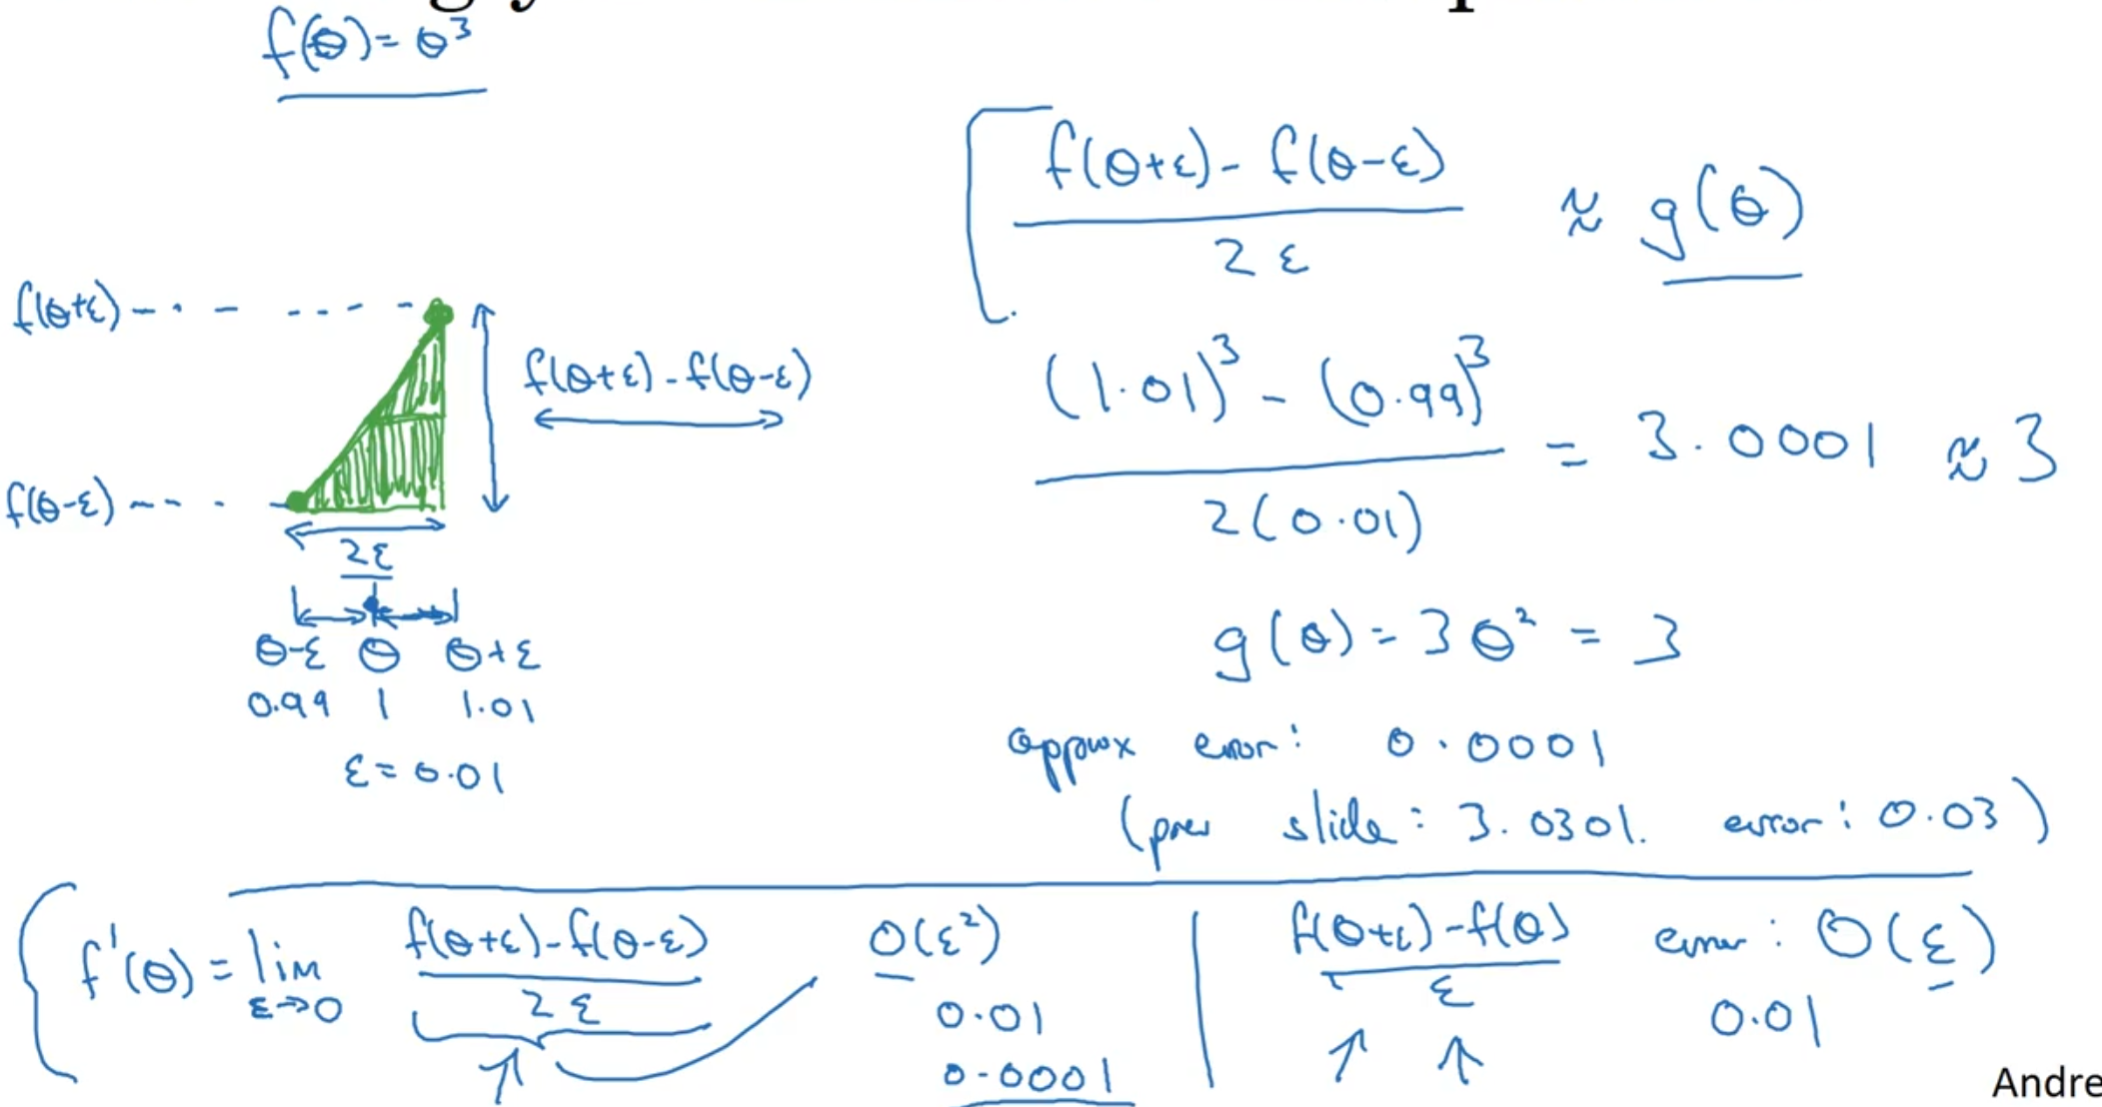 f(θ) = θ³
f(θ+ε) - f(θ-ε)
2ε
≈ g(θ)
f(θ+ε)
f(θ+ε) - f(θ-ε)
(1.01)³ - (0.99)³
2(0.01)
= 3.0001 ≈ 3
f(θ-ε)
2ε
θ-ε θ θ+ε
0.99 1 1.01
ε = 0.01
g(θ) = 3θ² = 3
approx error: 0.0001
(prev slide: 3.0301. error: 0.03)
f'(θ) = lim
ε→0
f(θ+ε) - f(θ-ε)
2ε
O(ε²)
0.01
0.0001
f(θ+ε) - f(θ)
ε
error: O(ε)
0.01
Andre